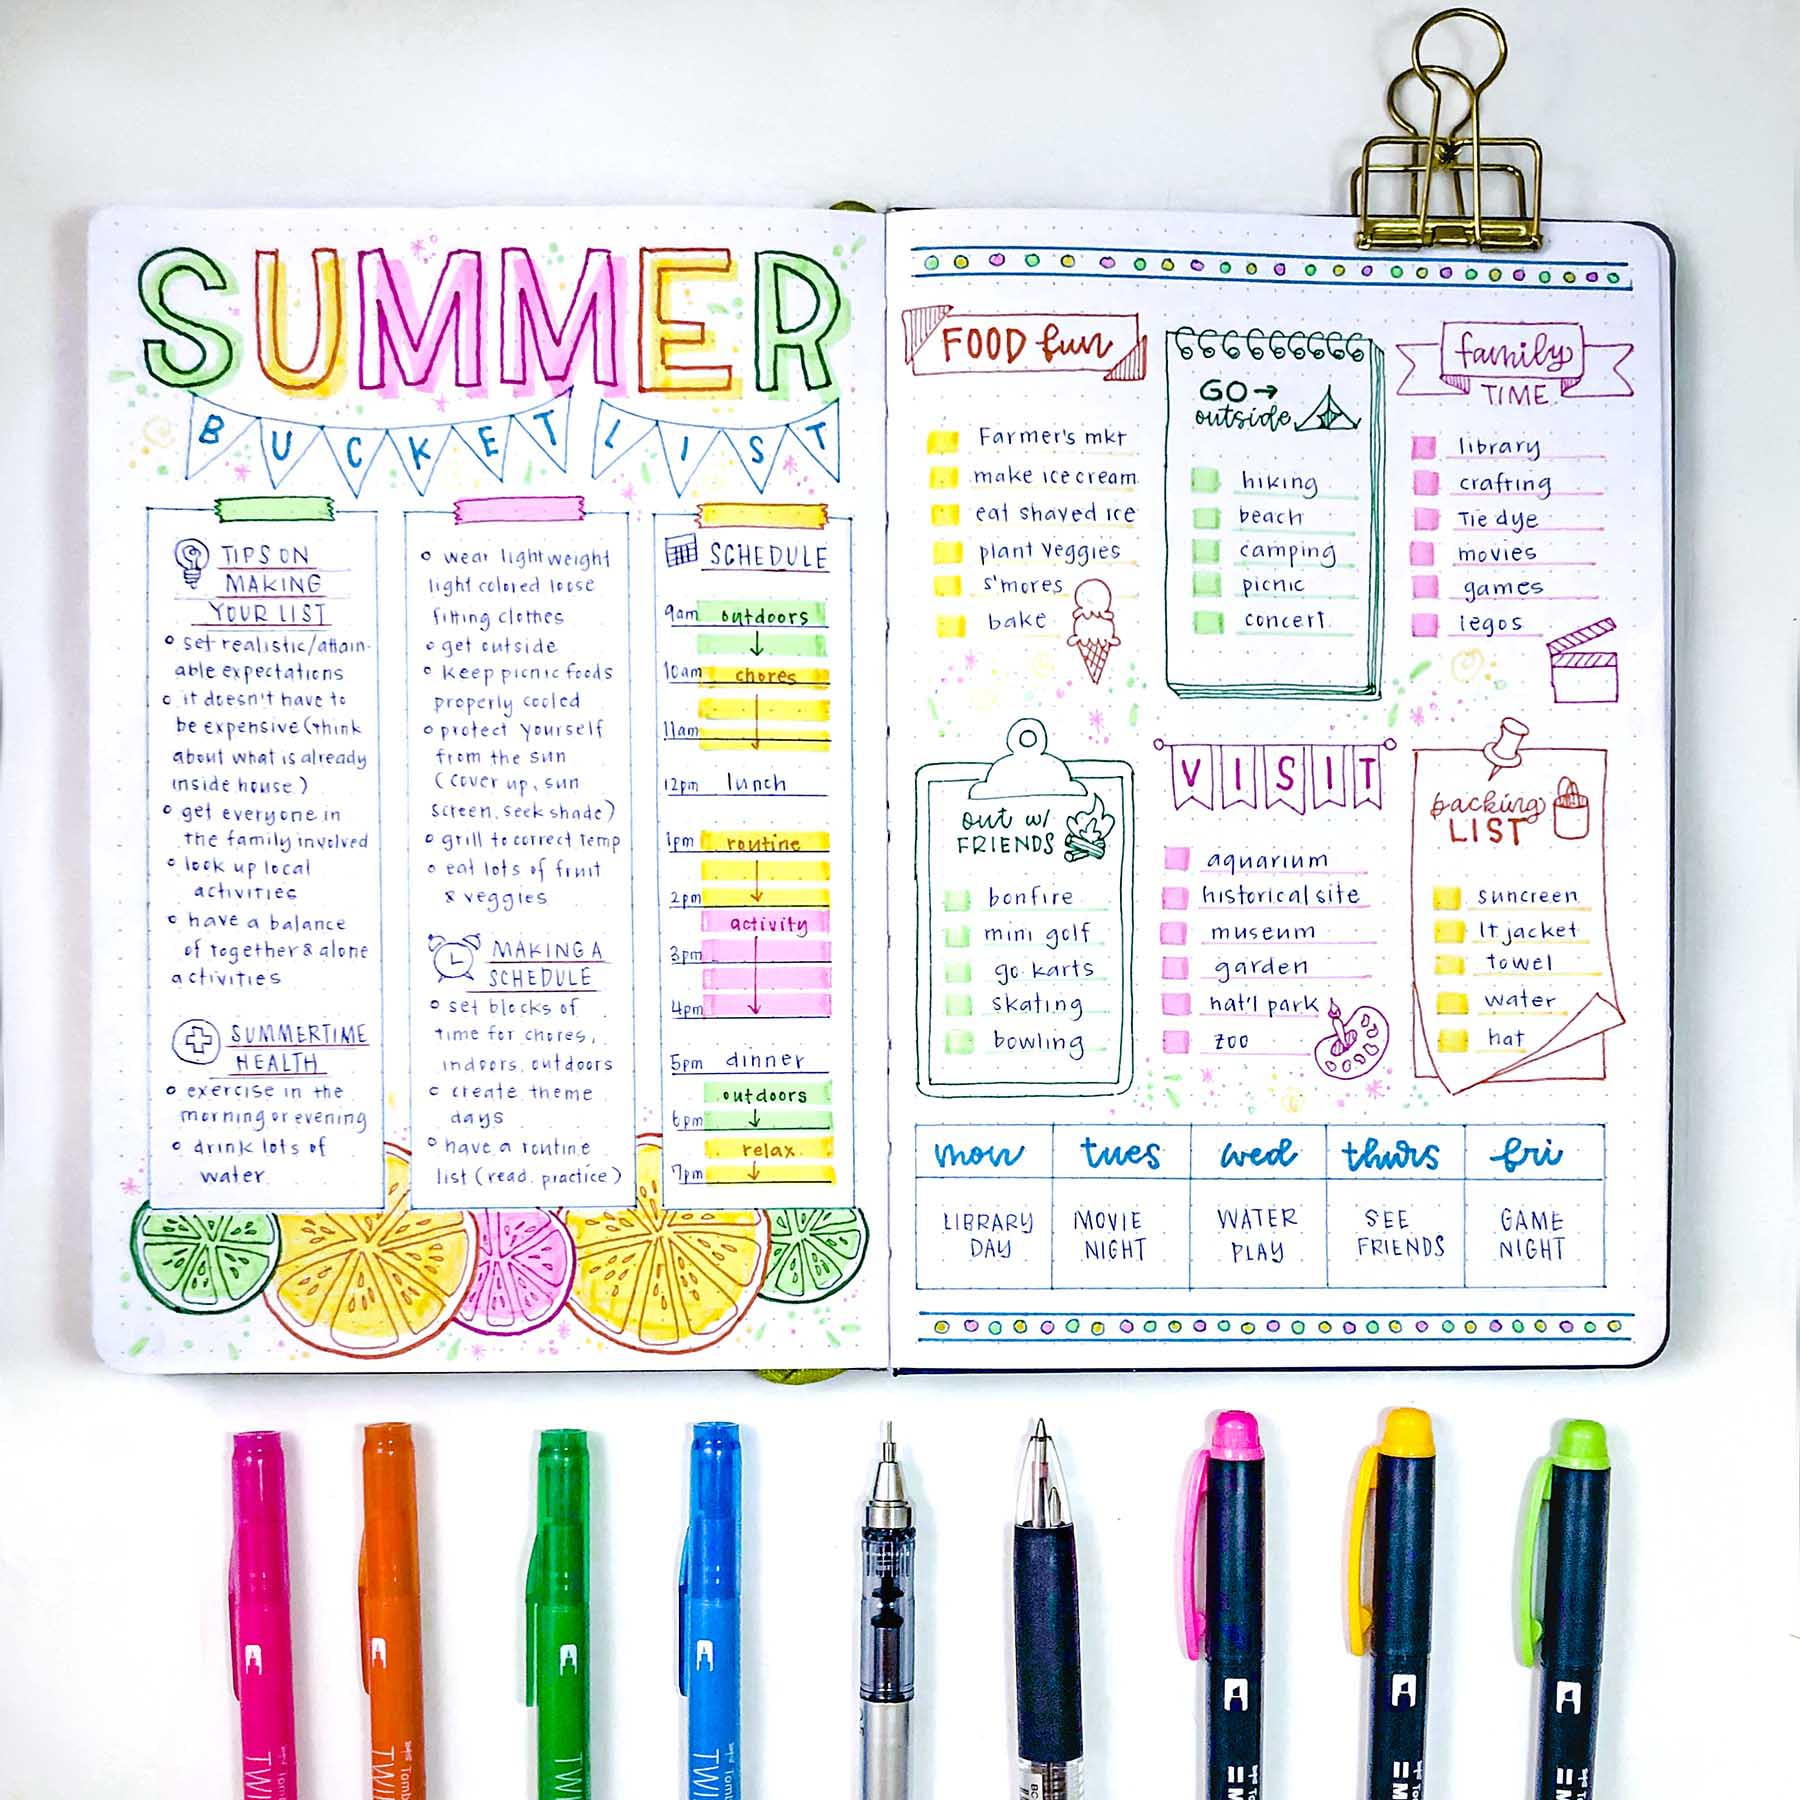 SUMMER
BUCKET LIST
TIPS ON
MAKING
YOUR LIST
set realistic/attain-
able expectations
it doesn't have to
be expensive (think
about what is already
inside house)
get everyone in
the family involved
look up local
activities
have a balance
of together & alone
activities
SUMMERTIME
HEALTH
exercise in the
morning or evening
drink lots of
water
wear lightweight
light colored loose
fitting clothes
get outside
keep picnic foods
properly cooled
protect yourself
from the sun
(cover up, sun
screen, seek shade)
grill to correct temp
eat lots of fruit
& veggies
MAKING A
SCHEDULE
set blocks of
time for chores,
indoors, outdoors
create theme
days
have a routine
list (read, practice)
SCHEDULE
9am outdoors
10am chores
11am
12pm lunch
1pm routine
2pm
activity
3pm
4pm
5pm dinner
outdoors
6pm
relax
7pm
FOOD fun
Farmer's mkt
make ice cream
eat shaved ice
plant veggies
s'mores
bake
GO →
outside
hiking
beach
camping
picnic
concert
family
TIME
library
crafting
Tie dye
movies
games
legos
out w/
FRIENDS
bonfire
mini golf
go karts
skating
bowling
VISIT
aquarium
historical site
museum
garden
nat'l park
zoo
packing
LIST
suncreen
lt jacket
towel
water
hat
mon tues wed thurs fri
LIBRARY DAY
MOVIE NIGHT
WATER PLAY
SEE FRIENDS
GAME NIGHT